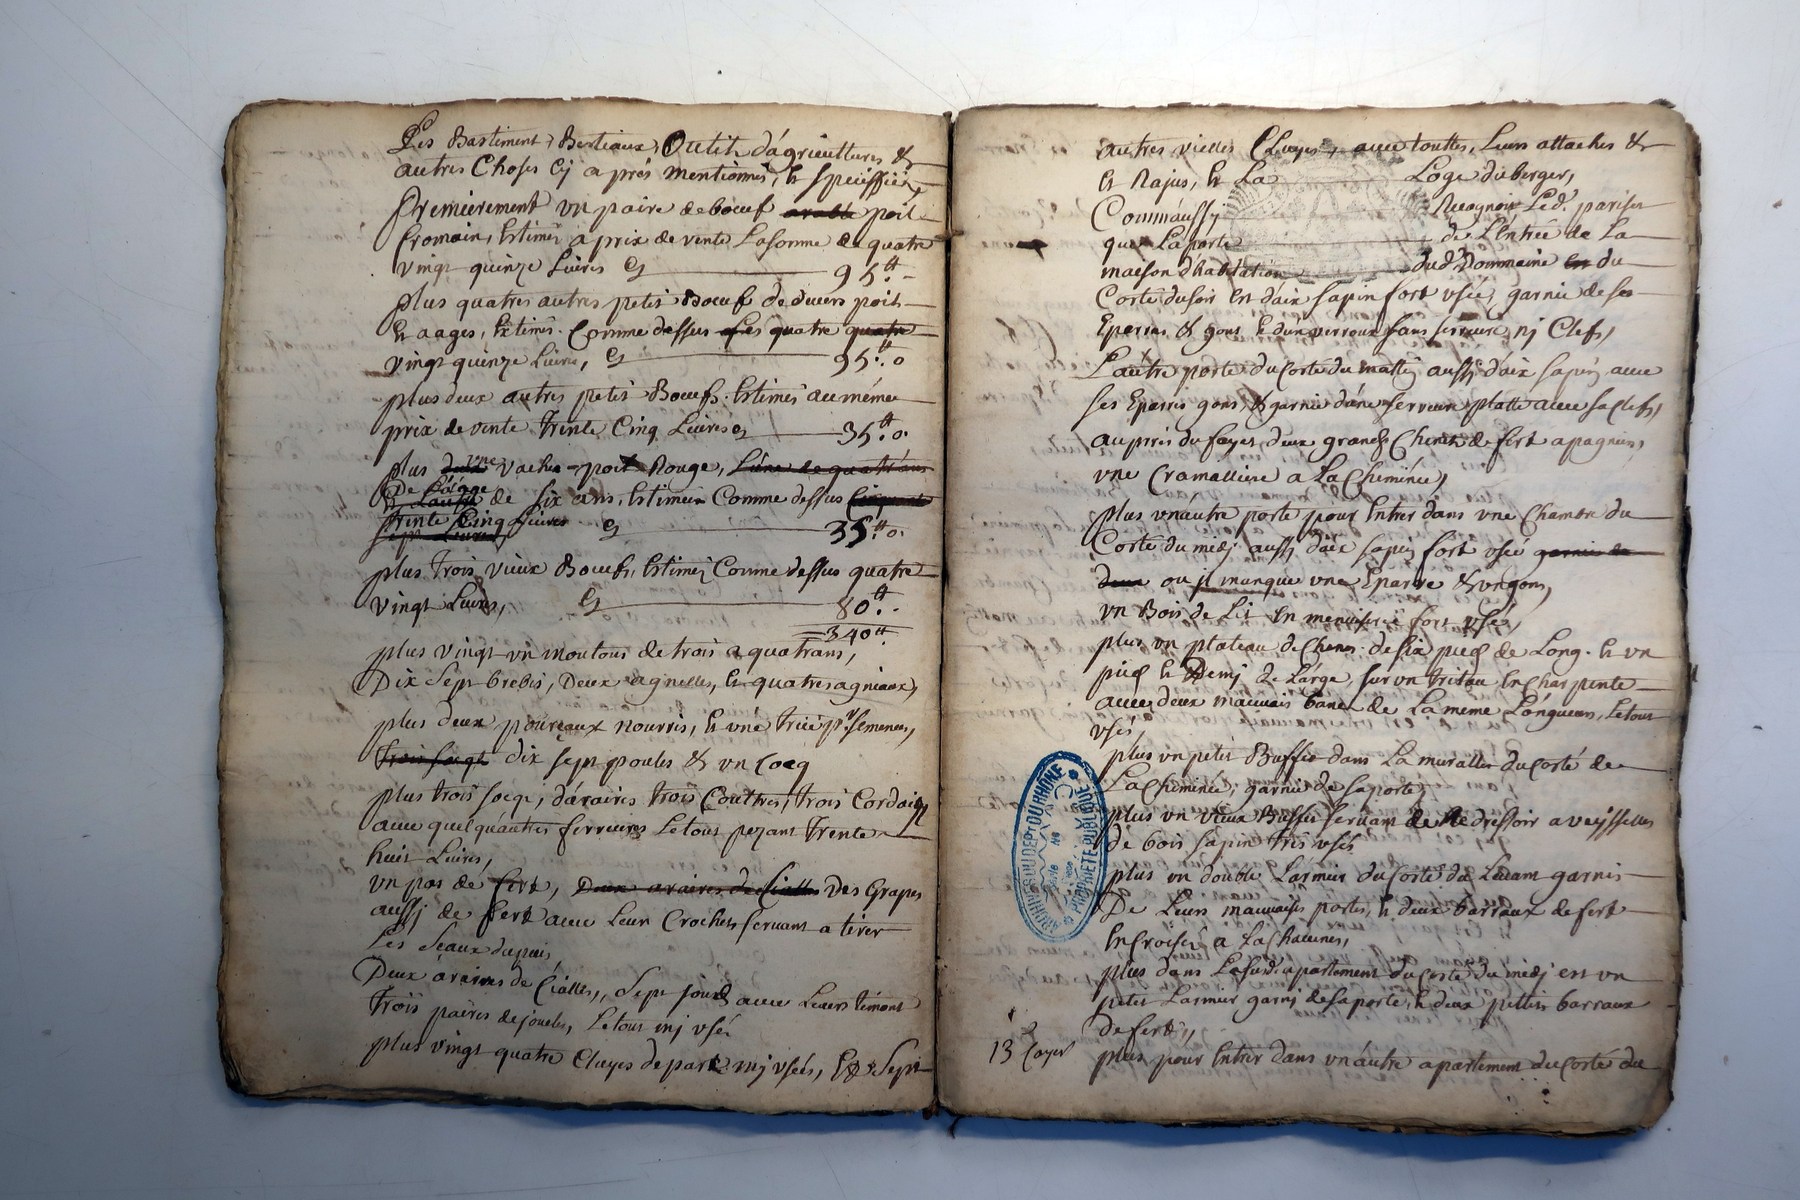 Les Bastiment, Bestiaux, Outils d'agricultures &
autres Choses Cy aprés mentionnés, & speciffiées
Premierement un paire de boeuf poil
fromain, Estimés a prix de vente La somme de quatre
vingt quinze Livres Cy 95 tt
plus quatres autres petis Boeuf de divers poils
& aages, Estimés Comme dessus quatre
vingt quinze Livres, Cy 95 tt 0
plus deux autres petis Boeufs Estimés au méme
prix de vente trente Cinq Livres Cy 35 tt 0
plus une vache poil Rouge,
De L'aage de six ans, Estimée Comme dessus
trente Cinq Livres Cy 35 tt 0
plus trois vieux Boeufs, Estimés Comme dessus quatre
vingt Livres, Cy 80 tt
340 tt
plus vingt un moutons de trois a quatrans,
Dix Sept brebis, Deux agnelles, & quatres agniaux,
plus deux pourçeaux nourris, & une truie pr semences,
dix sept poules & un Cocq
plus trois socqs, d'araires trois Couttres, trois Cordaig
avec quelqu'autres ferrures Le tout pezant trente
huit Livres,
un pas de fert, Des Grapes
aussy de fert avec Leur Crochets servant a tirer
Les Seaux du puis,
Deux araires de Cialles, Sept jougs avec Leurs timons
trois paires de joucles, Le tout my usé
plus vingt quatre Clayes de parc my usés, & Sept
autres vielles Clayes, avec touttes Leurs attaches &
& Najus, & La Loge du berger,
Comm'aussy Recognoit Led. parisu
que La porte de L'Entrée de La
maison d'habitation dud. Dommaine du
Corté du soir Est d'aix sapin fort usée, garnie de ses
Eparres & gons & d'un verroux sans serrure ny Clefs,
L'autre porte du Corté du mattin aussy d'aix sapin avec
ses Eparres gons, & garnie d'une serrure platte avec sa Clefs,
auprés du foyer deux grands Chenets de fert a pagniers,
une Cramalliere a La Cheminée,
plus un autre porte pour Entrer dans une Chambre du
Corté du midy aussy d'aix sapin fort usée
ou il manque une Eparre & un gons,
un Bois de Lit En menuiserie fort usé,
plus un plateau de Chenes de six pieds de Long & un
pied & Demy de Large sur un tritau En Charpente
avec deux mauvais bancs de La méme Longueurs, Le tout
usé
plus un petit Buffet dans La muralle du Corté de
La Cheminée, garnie de sa porte,
plus un vieux Buffet servant de dressoir a veysselles
de bois sapin tres usés
plus un double Larmier du Corté du Levant garnis
De Leurs mauvaises portes, & deux barraux de fert
En Croisés a La Chacunes,
plus dans Le susd. apartement du Corté du midy est un
petit Larmier garny de sa porte, & deux pettits barraux
de fert,
plus pour Entrer dans un autre apartement du Corté du
13 Cayer
ARCHIVES DU DEPT DU RHONE
PROPRIÉTÉ PUBLIQUE